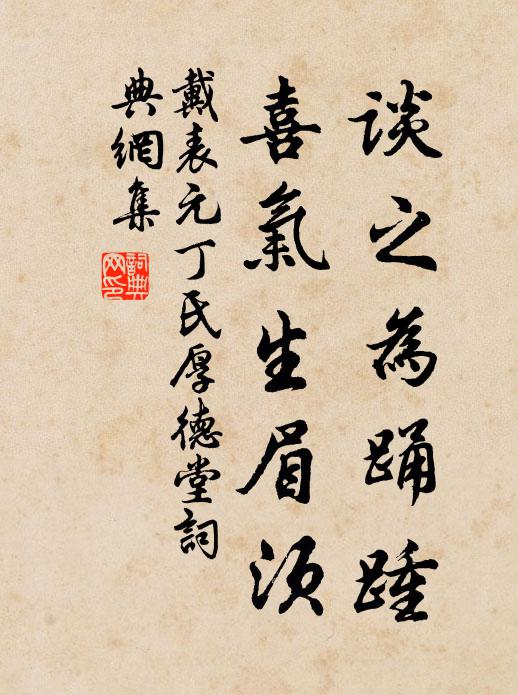 談之為踊踵
喜氣生眉須
戴表元丁氏厚德堂詞
典網集
詞典网印